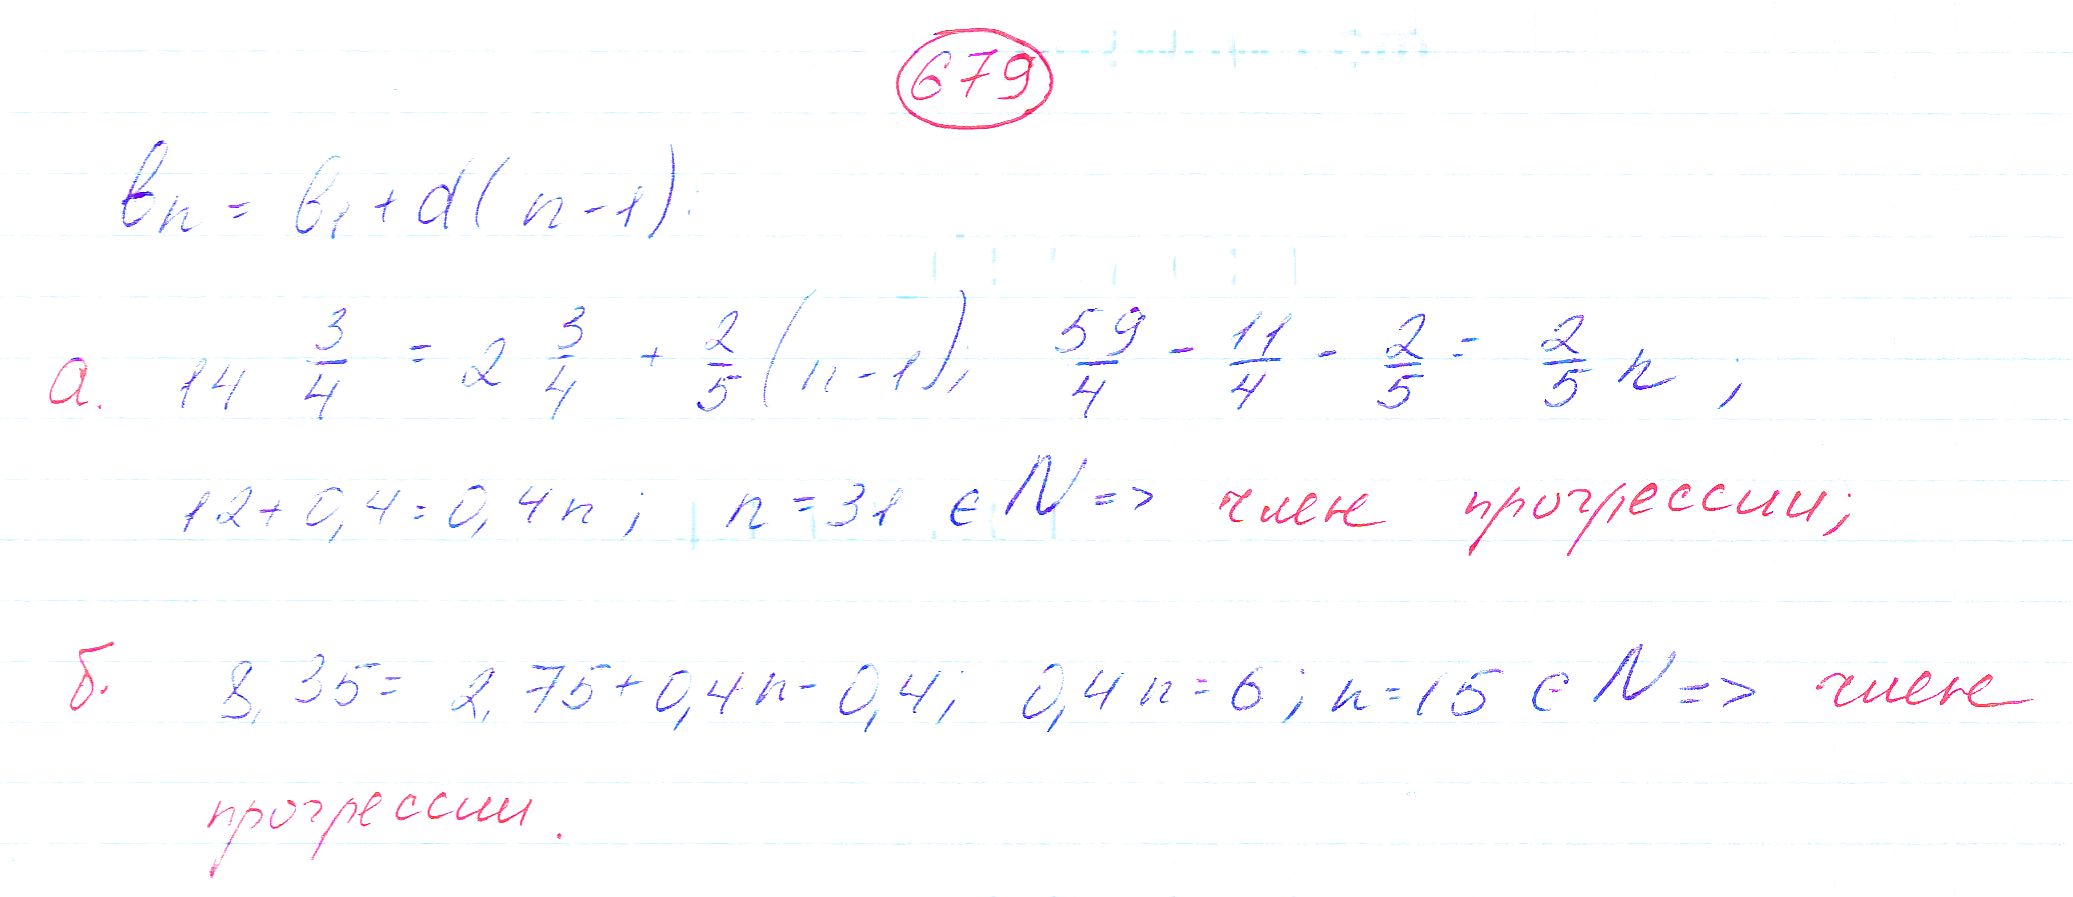 679
bₙ = b₁ + d(n-1):
а. 14 3/4 = 2 3/4 + 2/5 (n-1); 59/4 - 11/4 - 2/5 = 2/5 n;
12+0,4=0,4n; n=31 ∈ N => член прогрессии;
б. 8,35= 2,75+0,4n-0,4; 0,4n=6; n=15 ∈ N => член
прогрессии.